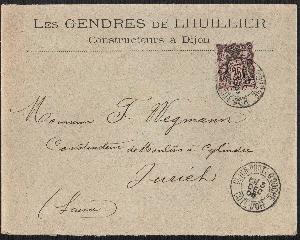 LES GENDRES DE LHUILLIER
Constructeurs à Dijon
25
Monsieur F. Wegmann
Constructeur de Moulins à Cylindres
Zurich
(Suisse)